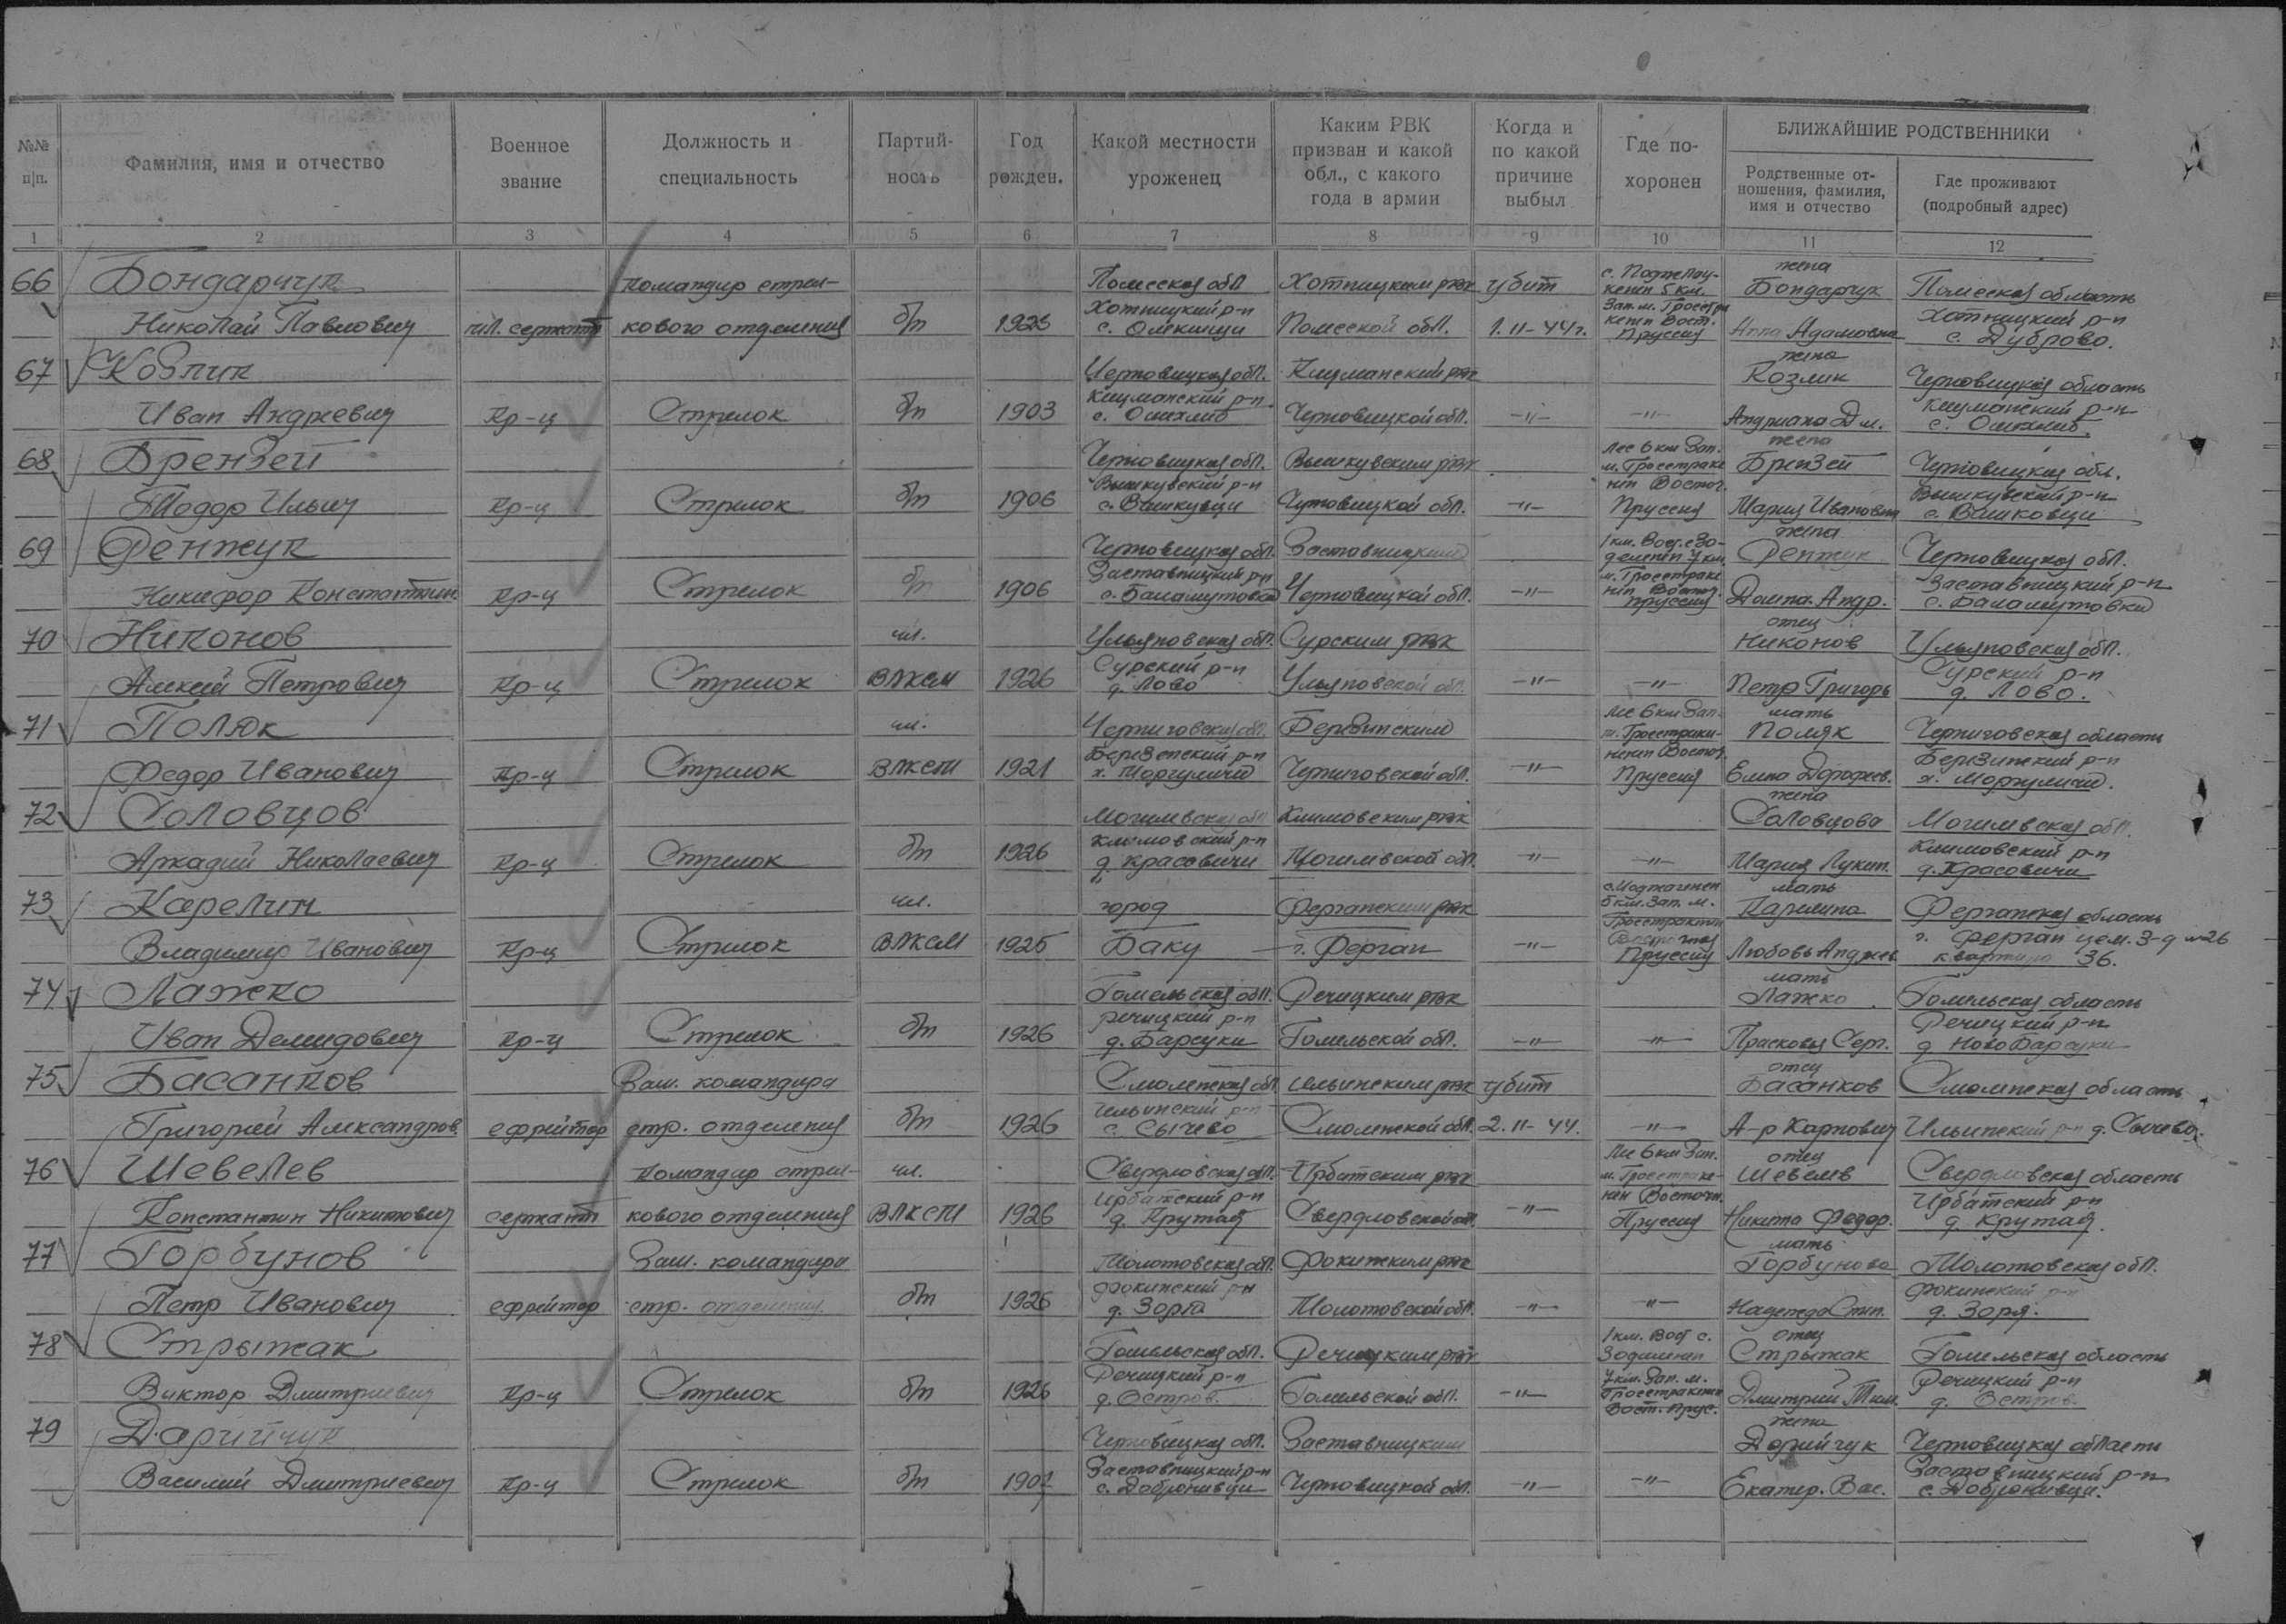 №№ п|п.
Фамилия, имя и отчество
Военное звание
Должность и специальность
Партий- ность
Год рожден.
Какой местности уроженец
Каким РВК призван и какой обл., с какого года в армии
Когда и по какой причине выбыл
Где по- хоронен
БЛИЖАЙШИЕ РОДСТВЕННИКИ
Родственные от- ношения, фамилия, имя и отчество
Где проживают (подробный адрес)
1 2 3 4 5 6 7 8 9 10 11 12
жена
66 Бондарчук Командир стрел- Полесская обл Хотницким рвк убит Бондарчук Полесская область
Хотницкий р-н Хотницкий р-н
Николай Павлович мл. сержант кового отделения б/п 1925 Полесской обл. 1.11-44г. Пруссия Анна Адамовна с. Дуброво.
жена
67 Козлик Черновицкая обл. Кицманский рвк Козлик Черновицкая область
Кицманский р-н Кицманский р-н
Иван Андреевич Кр-ц Стрелок б/п 1903 с. Ошихлиб Черновицкой обл. -"- -"- Андриана Дм. с. Ошихлиб
жена
68 Брензей Черновицкая обл. Вашкувским рвк лес 6 км Зап. Брензей Черновицкая обл.
Вашкувский р-н Вашкувский р-н
Тодор Ильич Кр-ц Стрелок б/п 1906 с. Вашкувци Черновицкой обл. -"- Пруссия Мария Ивановна с. Вашковци
жена
69 Фенжук Черновицкая обл. Заставницким 1 км. Вост. с Зо- Фенжук Черновицкая обл.
Заставницкий р-н Заставницкий р-н
Никифор Константин. Кр-ц Стрелок б/п 1906 с. Баламутовка Черновицкой обл. -"- Пруссия Домна Андр. с. Баламутовка
отец
70 Никонов чл. Ульяновская обл. Сурским рвк Никонов Ульяновская обл.
Сурский р-н Сурский р-н
Алексей Петрович Кр-ц Стрелок ВЛКСМ 1926 д. Лово Ульяновской обл. -"- -"- Петр Григорь д. Лово.
мать
71 Поляк чл. Черниговская обл. Березинским лес 6 км Зап. Поляк Черниговская область
Федор Иванович Кр-ц Стрелок ВЛКСМ 1921 Черниговской обл. -"- Пруссия Елена Дорофеев.
жена
72 Соловцов Могилевская обл Климовским рвк Соловцова Могилевская обл.
Климовский р-н Климовский р-н
Аркадий Николаевич Кр-ц Стрелок б/п 1926 д. Красовичи Могилевской обл. -"- -"- Мария Лукин. д. Красовичи
мать
73 Карелин чл. город Ферганским рвк 5 км. Зап. м. Карелина Ферганская область
Владимир Иванович Кр-ц Стрелок ВЛКСМ 1925 Баку г. Ферган -"- Восточная Пруссия Любовь Андреев. г. Ферган цем. З-д №26 квартира 36.
мать
74 Лажко Гомельская обл. Речицким рвк Лажко Гомельская область
Речицкий р-н Речицкий р-н
Иван Демидович Кр-ц Стрелок б/п 1926 д. Барсуки Гомельской обл. -"- -"- Прасковья Серг. д Ново Барсуки
отец
75 Басанков Зам. командира Смоленская обл. Ильинским рвк убит Басанков Смоленская область
Ильинский р-н
Григорий Александров. ефрейтор стр. отделения б/п 1926 с. Сычево Смоленской обл. 2.11-44. -"- А-р Карпович Ильинский р-н д. Сычево.
отец
76 Шевелев Командир стрел- чл. Свердловская обл. Ирбитским рвк лес 6 км Зап. Шевелев Свердловская область
Константин Никитович сержант кового отделения ВЛКСМ 1926 д. Крутая Свердловской обл. -"- Пруссия Никита Федор. д. Крутая.
мать
77 Горбунов Зам. командира Молотовская обл. Фокинским рвк Горбунова Молотовская обл.
Фокинский р-н Фокинский р-н
Петр Иванович ефрейтор стр. отделения б/п 1926 д. Зоря Молотовской обл. -"- -"- Надежда Степ. д. Зоря.
отец
78 Стрыжак Гомельская обл. Речицким рвк 1 км. Вост с. Стрыжак Гомельская область
Речицкий р-н Речицкий р-н
Виктор Дмитриевич Кр-ц Стрелок б/п 1926 д. Остров. Гомельской обл. -"- Вост. Прус. Дмитрий д. Остров.
жена
79 Дарийчук Черновицкая обл. Заставницким Дорийчук Черновицкая область
Заставницкий р-н Заставницкий р-н
Василий Дмитриевич Кр-ц Стрелок б/п 1907 с. Добронивци Черновицкой обл. -"- -"- Екатер. Вас. с. Добронивци.